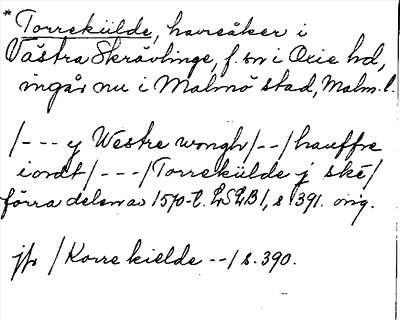 * Torrekülde, havreåker i
Västra Skrävlinge, f. sn i Oxie hd,
ingår nu i Malmö stad, Malm. l.
/--- y Westre wongh/--/hauffre
iordt/---/Torrekülde j ske/
förra delen av 1570-t. LSLB1, s 391. orig.
jfr /Korrekielde --/ s. 390.